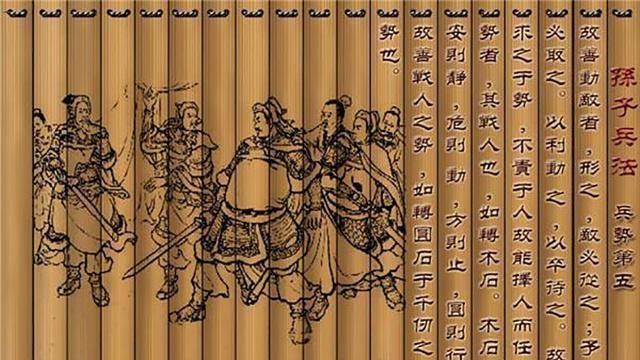 孫子兵法 兵勢第五
故善動敵者，形之，敵必從之；予
必取之。以利動之，以卒待之。故
求之于勢，不責于人故能擇人而任
勢者，其戰人也，如轉木石。木石
安則靜，危則動，方則止，圓則行
故善戰人之勢，如轉圓石于千仞之
勢也。